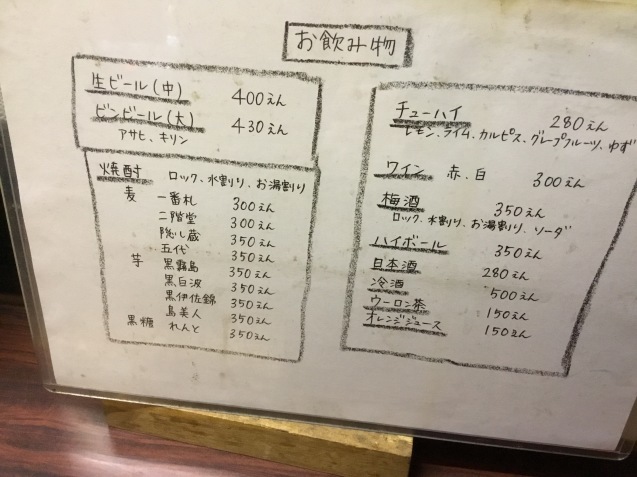 お飲み物
生ビール(中) 400えん
ビンビール(大) 430えん
アサヒ、キリン
焼酎 ロック、水割り、お湯割り
麦 一番札 300えん
二階堂 300えん
隠し蔵 350えん
五代 350えん
芋 黒霧島 350えん
黒白波 350えん
黒伊佐錦 350えん
島美人 350えん
黒糖 れんと 350えん
チューハイ 280えん
レモン、ライム、カルピス、グレープフルーツ、ゆず
ワイン 赤、白 300えん
梅酒 350えん
ロック、水割り、お湯割り、ソーダ
ハイボール 350えん
日本酒 280えん
冷酒 500えん
ウーロン茶 150えん
オレンジジュース 150えん